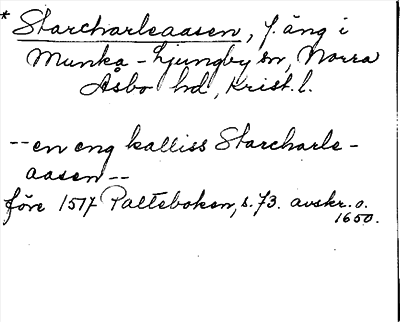 * Starcharleaasen, f. äng i
Munka-Ljungby sn, Norra
Åsbo hd, Krist. l.
-- en eng kalliss Starcharle-
aasen --
före 1517 Palteboken, s. 73. avskr. o.
1650.